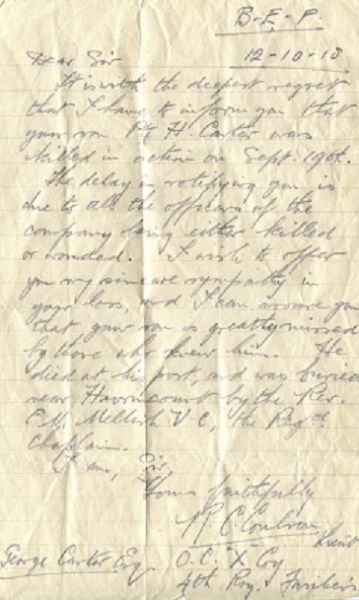 B-E-F.
12-10-18
Dear Sir
It is with the deepest regret
that I have to inform you that
your son Pte H. Carter was
killed in action on Sept.
The delay in notifying you is
due to all the officers of the
company being either killed
or wounded. I wish to offer
you my sincere sympathy in
your loss, and I can assure you
that your son is greatly missed
by those who knew him. He
died at his post, and was buried
near Havrincourt by the Rev.
E.N. Mellish V C, the Regtl
Chaplain.
I am, Sir,
Yours faithfully
R C. Coulson Lieut
George Carter Esq. O.C. "X" Coy
4th Roy. Fusiliers